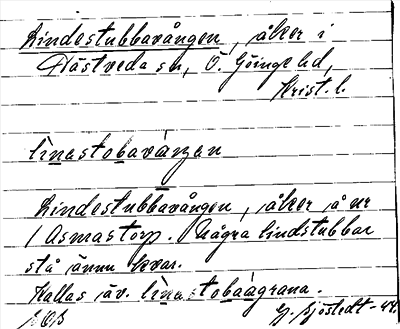 Lindestubbavången, åker i
Hästveda sn, Ö. Göinge hd,
Krist. l.
linastobavángan
Lindestubbavången, åker å nr
1 Asmastorp. Några lindstubbar
stå ännu kvar.
Kallas äv. linastobaágrana.
G. Sjöstedt-44